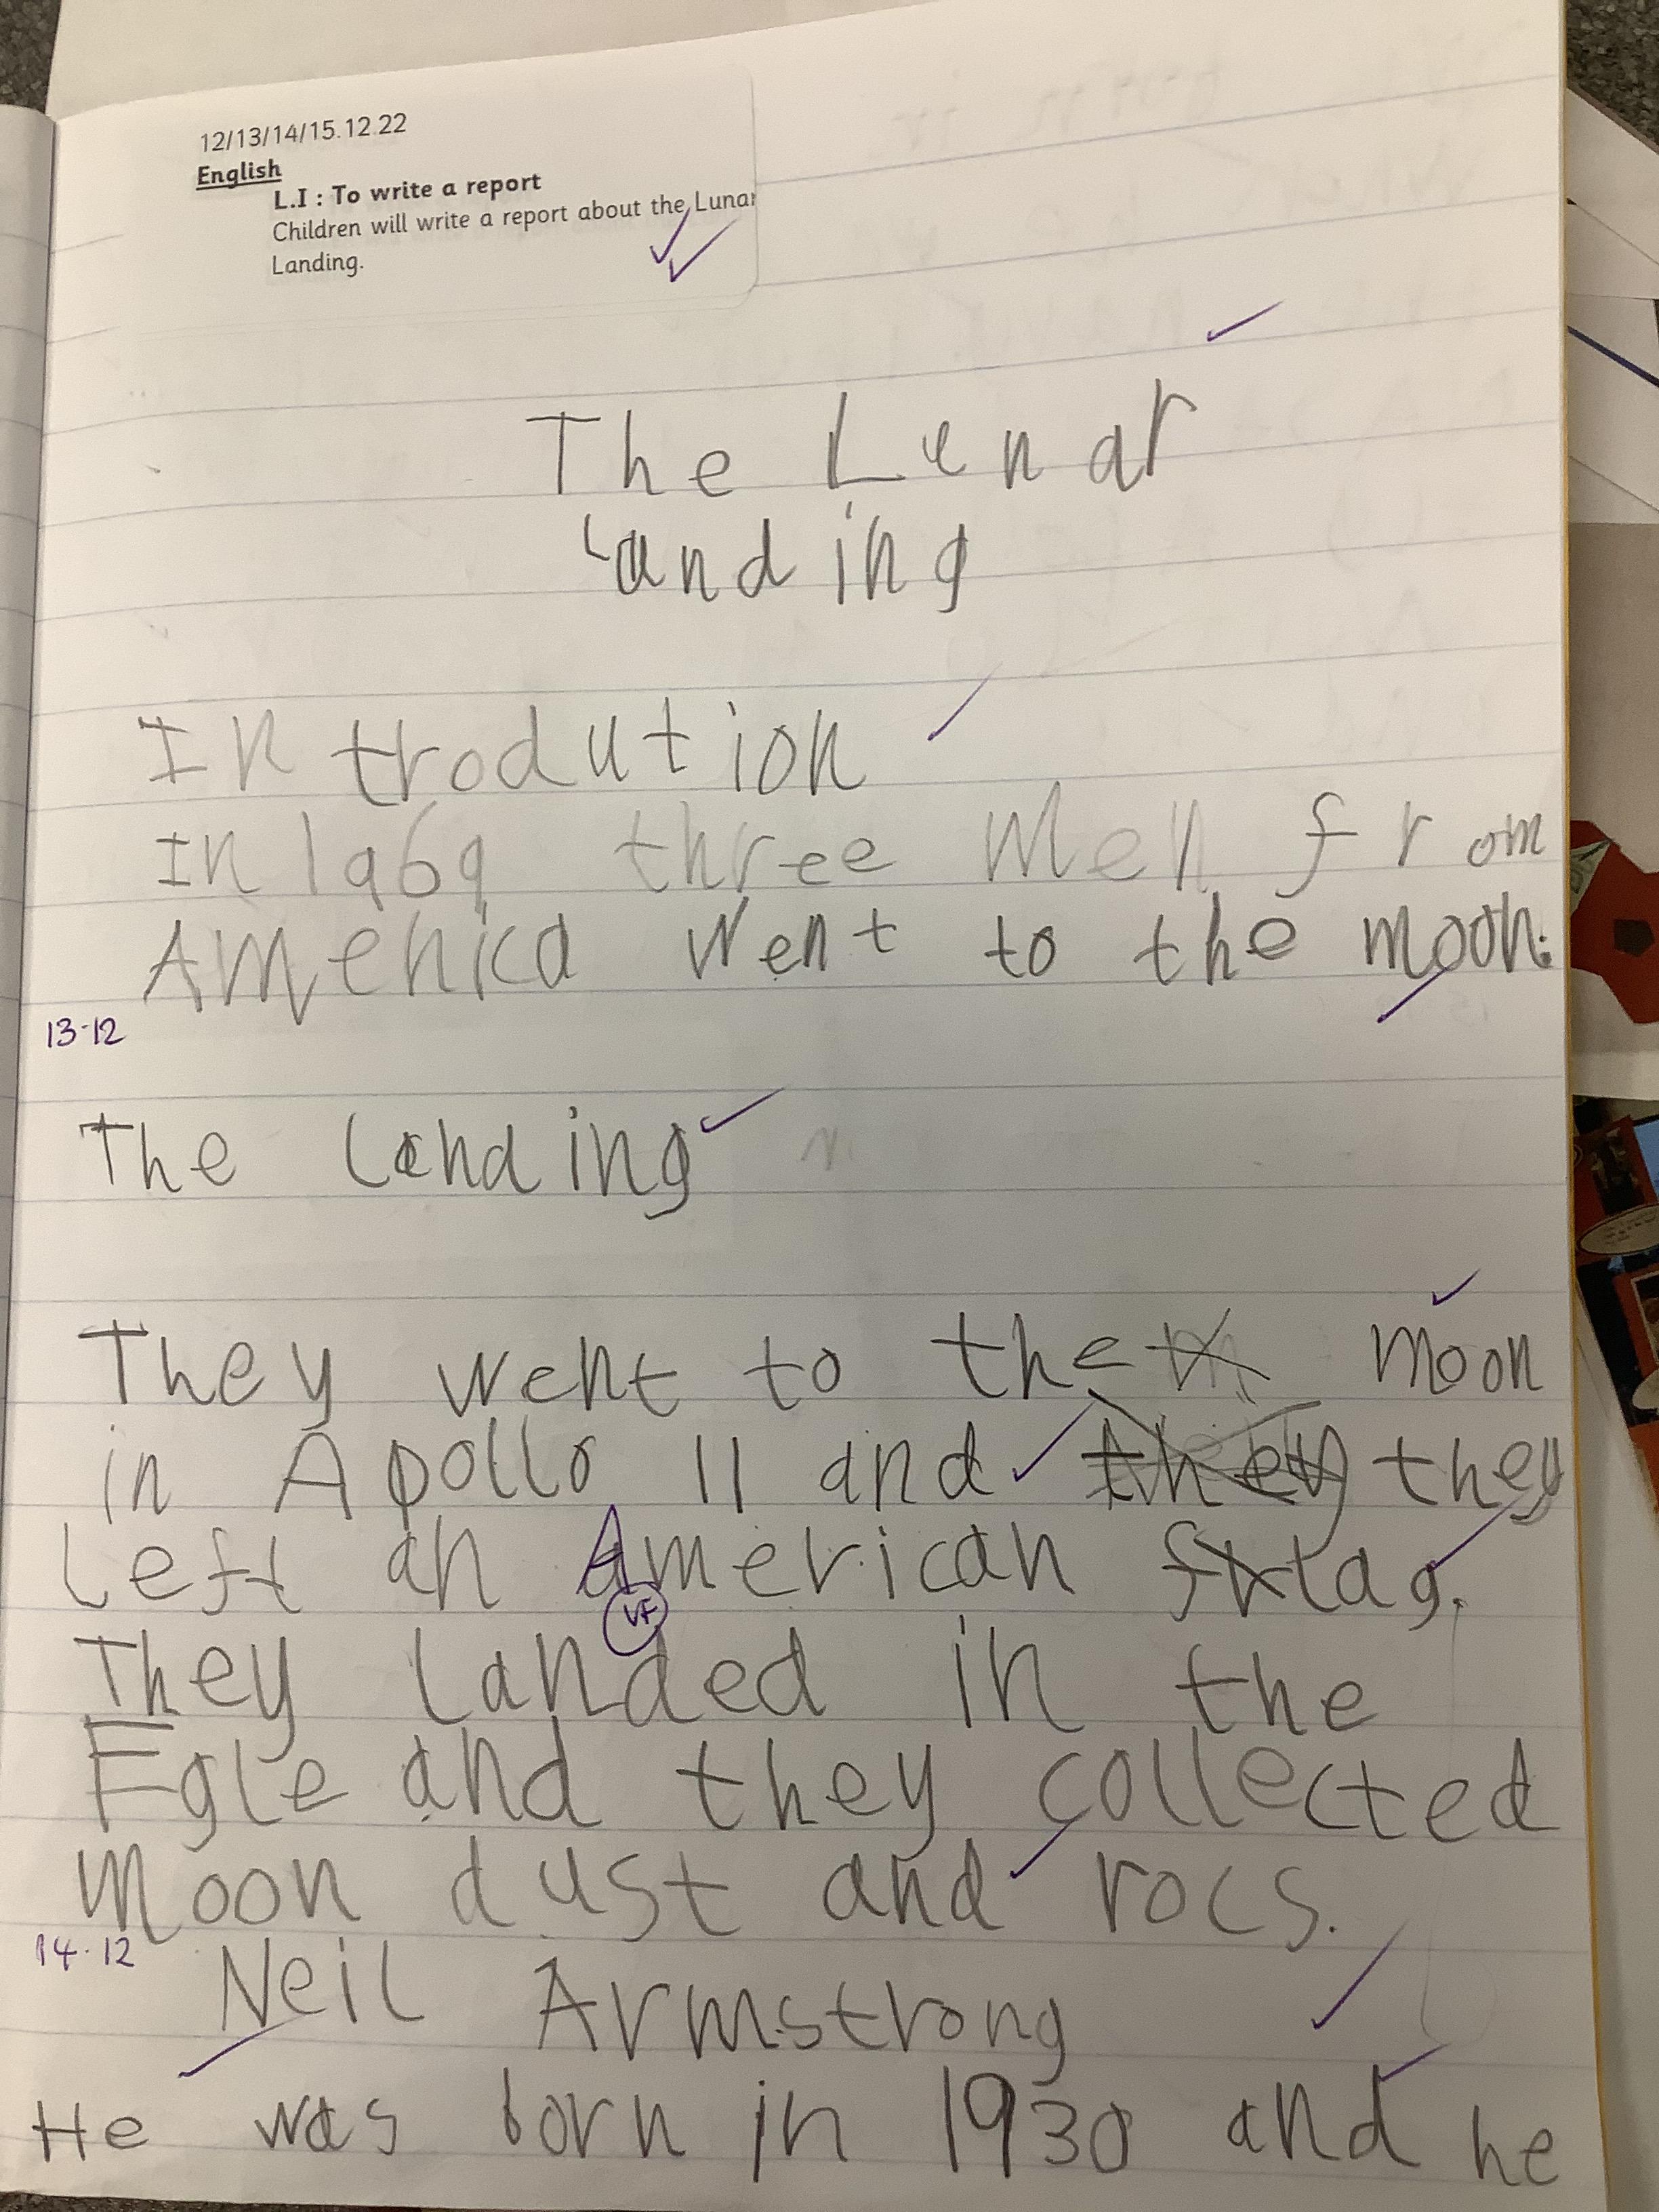 12/13/14/15.12.22
English
L.I : To write a report
Children will write a report about the Lunar
Landing.
The Lunar
Landing
Introdution
In 1969 three Men from
America went to the moon.
13-12
The Landing
They went to the moon
in Apollo 11 and they they
left an American flag.
VF
They landed in the
Egle and they collected
moon dust and rocs.
14.12
Neil Armstrong
He was born in 1930 and he